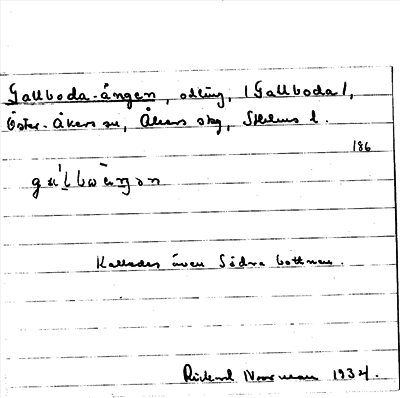 Gallboda-ängen, odling, (Gallboda),
Öster-Åkers sn, Åkers skg, Sthlms l.
186
Kallades även Södra bottnen.
Rickard Norrman 1934.